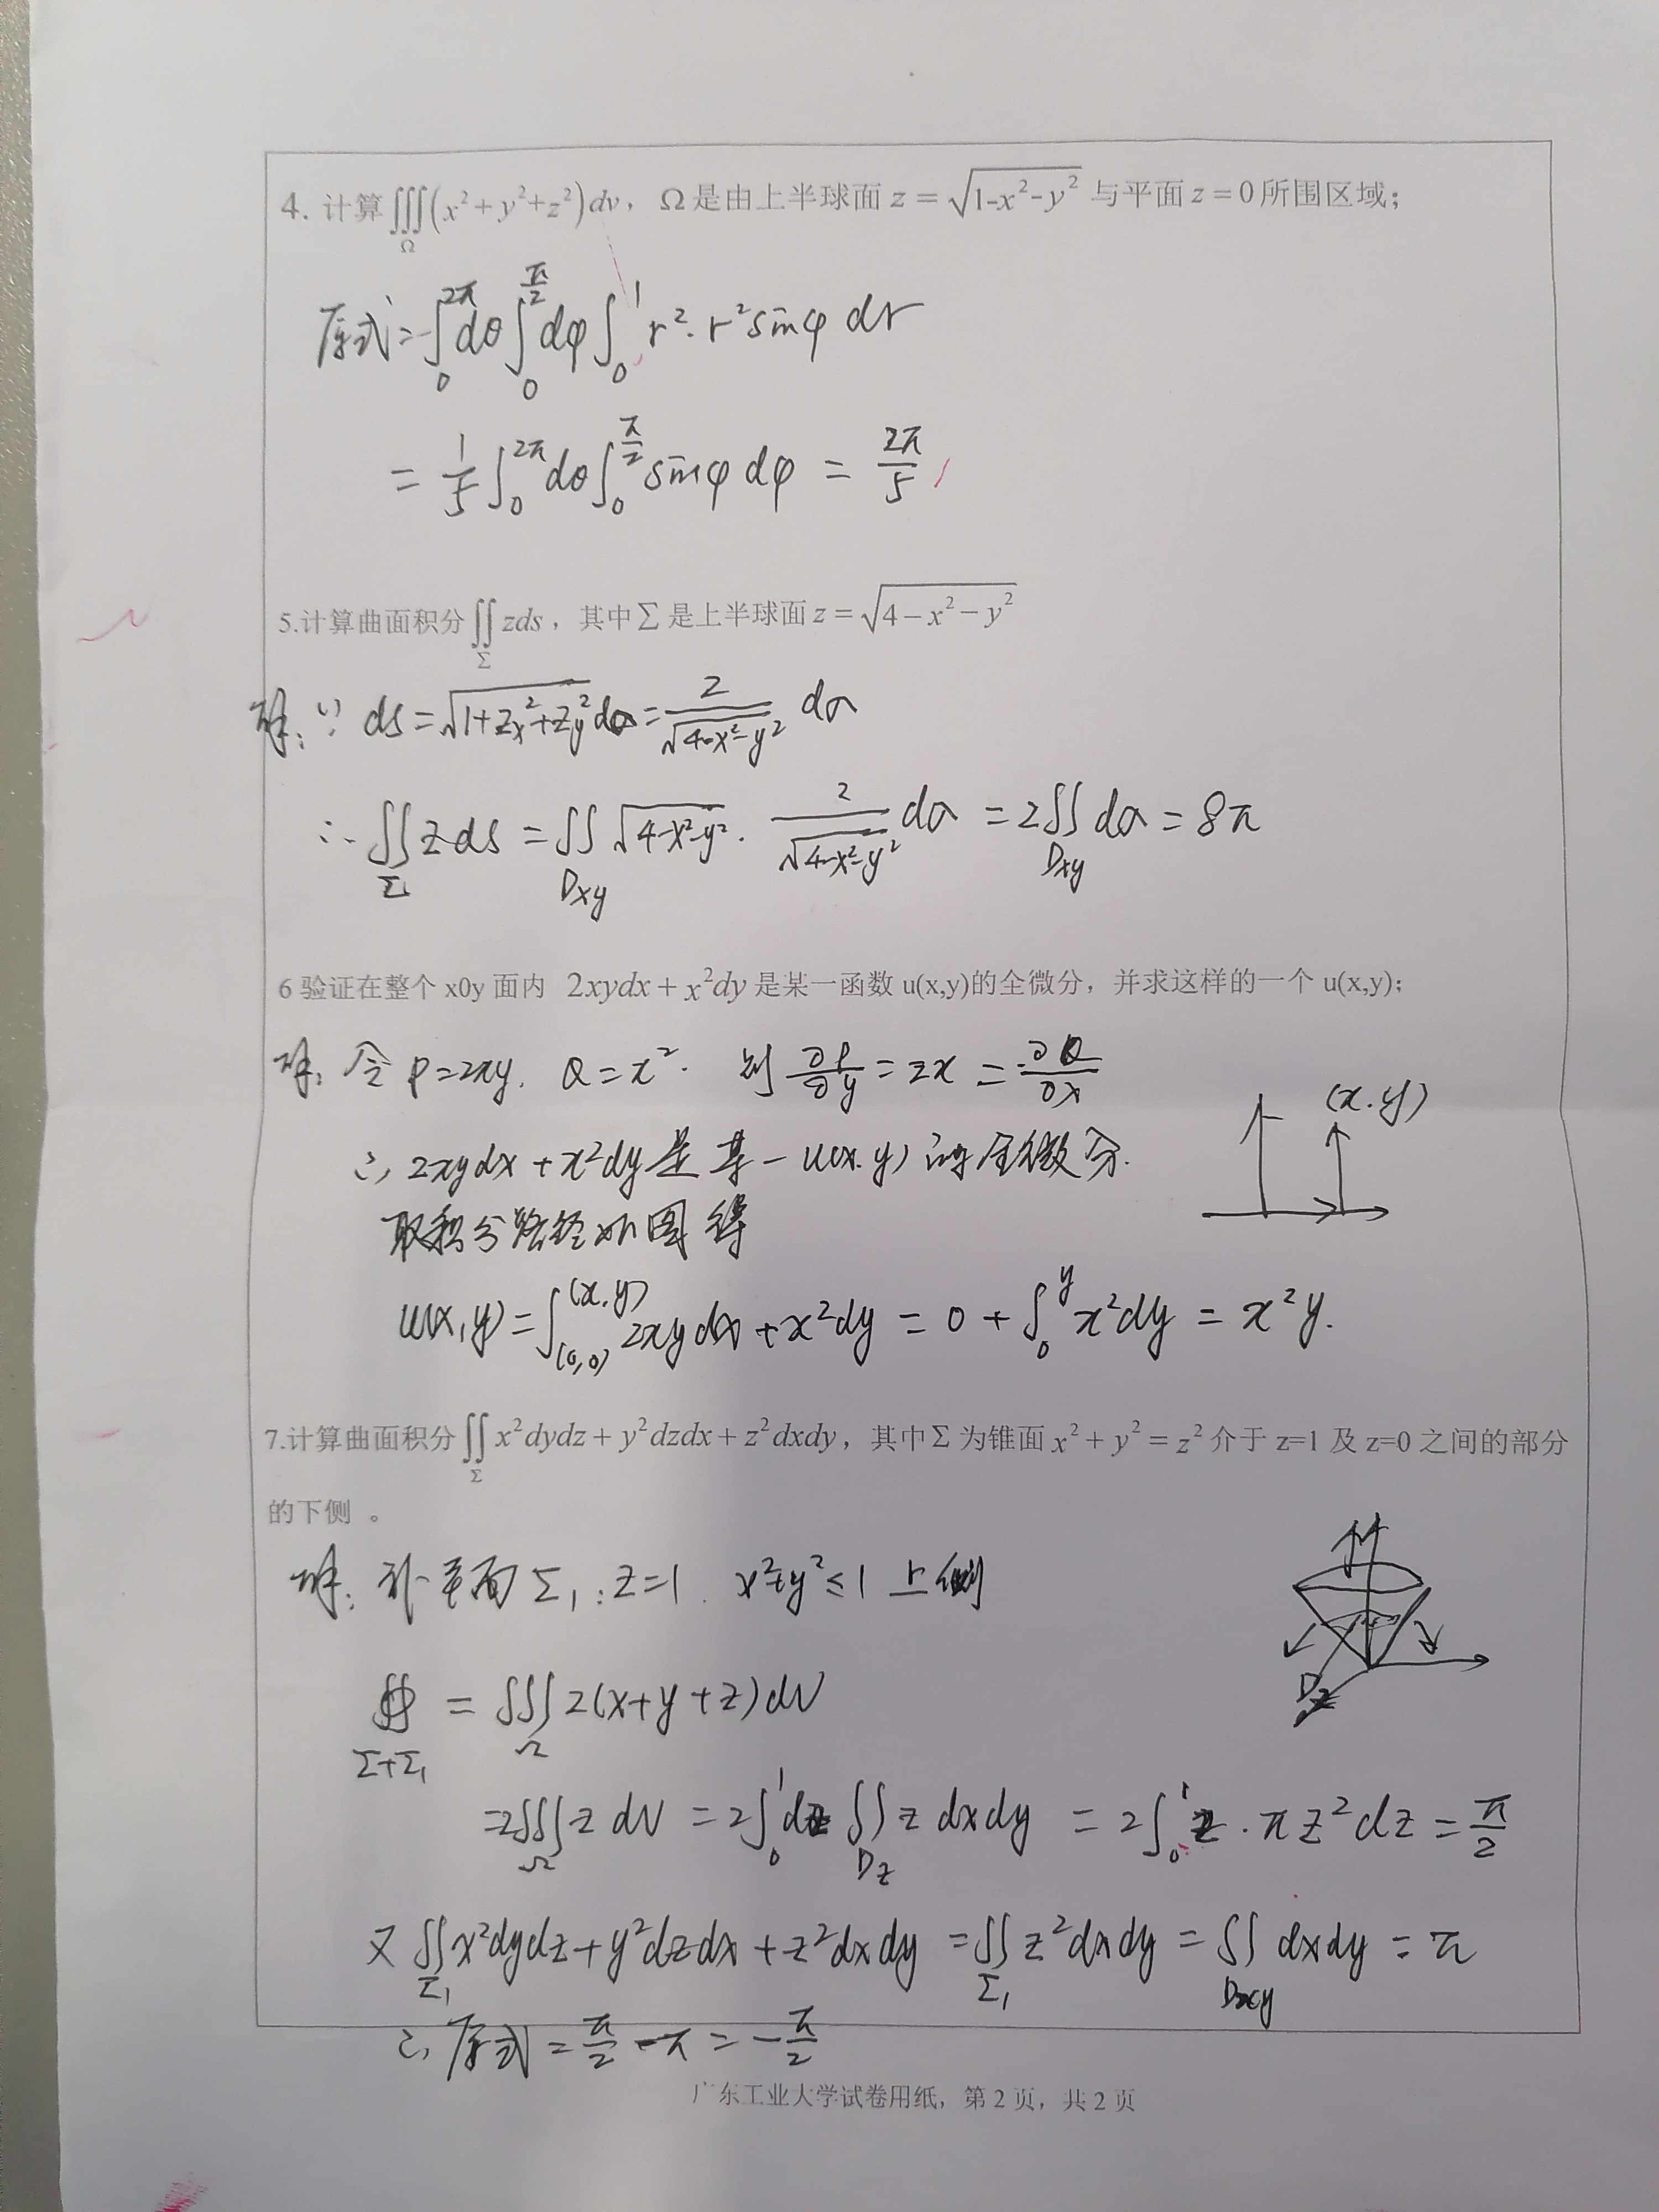 4. 计算∭_Ω(x²+y²+z²)dv，Ω是由上半球面 z=√(1-x²-y²) 与平面 z=0所围区域；
原式=∫₀^{2π}dθ∫₀^{π/2}dφ∫₀^1 r²·r²sinφ dr
=1/5∫₀^{2π}dθ∫₀^{π/2}sinφ dφ = 2π/5
5.计算曲面积分∬_Σ zds，其中Σ是上半球面 z=√(4-x²-y²)
解：∵ ds=√(1+z_x²+z_y²)dσ=2/√(4-x²-y²) dσ
∴ ∬_Σ zds = ∬_{Dxy} √(4-x²-y²)·2/√(4-x²-y²) dσ = 2∬_{Dxy} dσ = 8π
6 验证在整个 x0y 面内 2xydx+x²dy是某一函数 u(x,y)的全微分，并求这样的一个 u(x,y)；
解：令 P=2xy. Q=x². 则 ∂P/∂y=2x=∂Q/∂x
(x.y)
∴ 2xydx+x²dy是某一u(x.y)的全微分.
取积分路径如图得
u(x,y)=∫_{(0,0)}^{(x,y)} 2xydx+x²dy = 0+∫₀^y x²dy = x²y.
7.计算曲面积分∬_Σ x²dydz+y²dzdx+z²dxdy，其中Σ为锥面 x²+y²=z² 介于 z=1 及 z=0 之间的部分
的下侧 。
解：补平面Σ₁:z=1. x²+y²≤1 上侧
Dz
∯_{Σ+Σ₁} = ∭_Ω 2(x+y+z)dV
=2∭_Ω z dV = 2∫₀^1 dz∬_{Dz} z dxdy = 2∫₀^1 z·πz²dz = π/2
又∬_{Σ₁} x²dydz+y²dzdx+z²dxdy = ∬_{Σ₁} z²dxdy = ∬_{Dxy} dxdy = π
∴ 原式=π/2-π=-π/2
广东工业大学试卷用纸，第 2 页，共 2 页